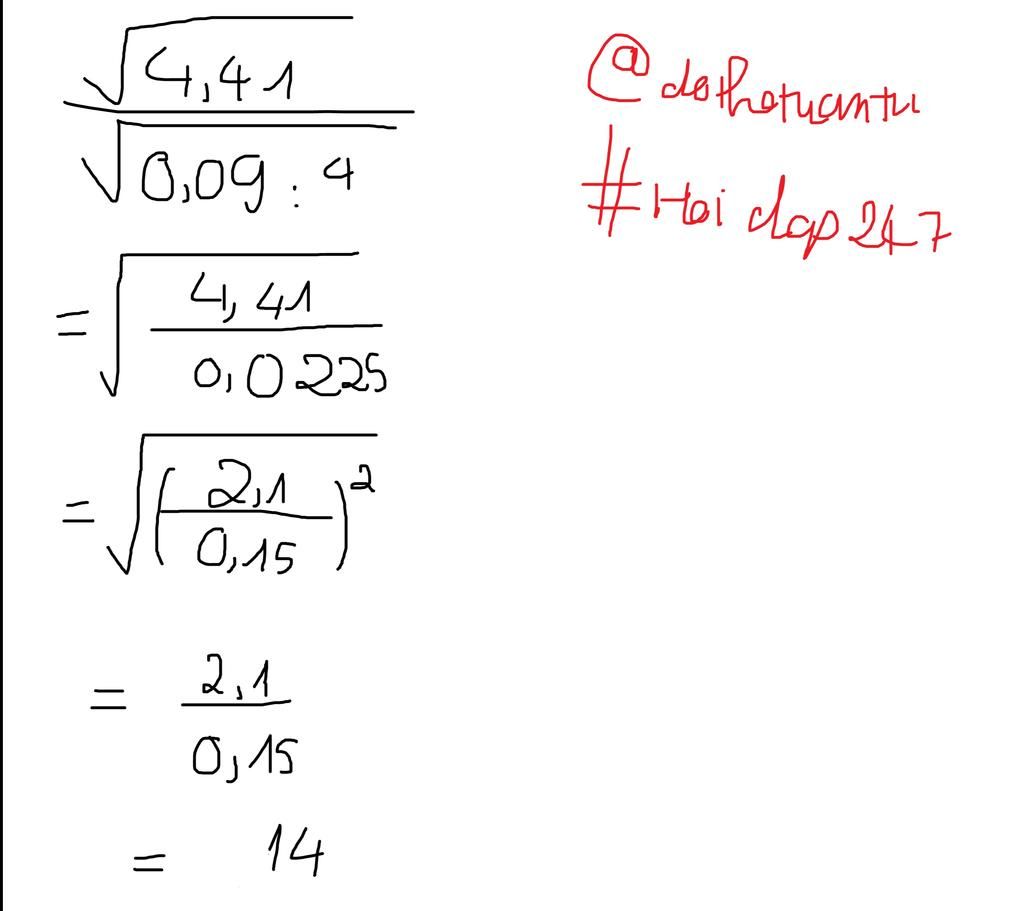 √4,41
√0,09 : 4
= √4,41
0,0225
= √(2,1)²
0,15
= 2,1
0,15
= 14
@dothetuantu
#Hoi dap 247